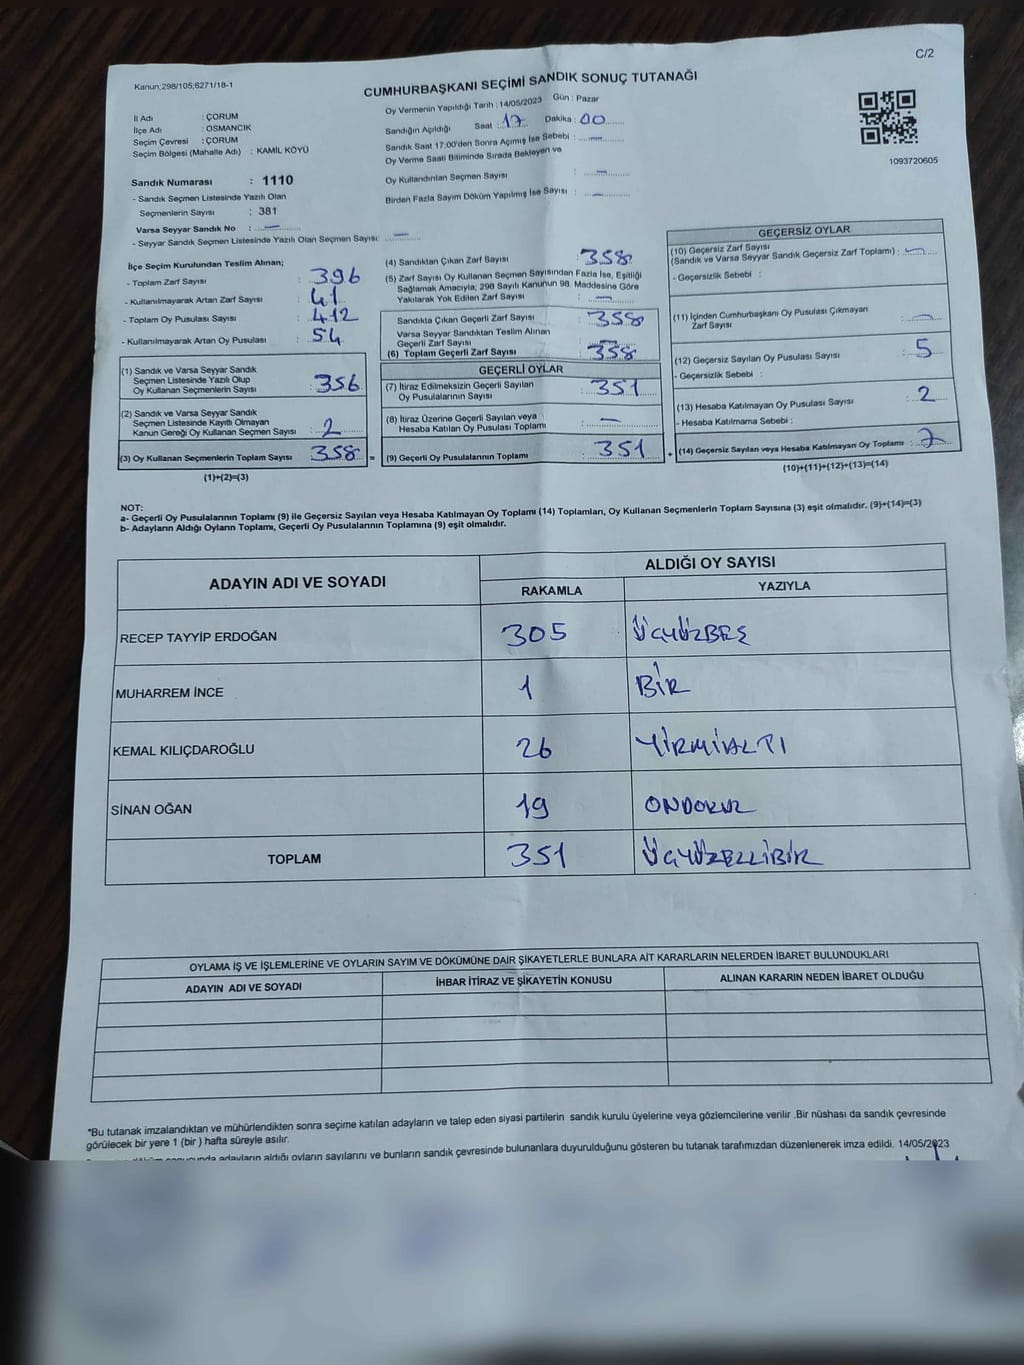 C/2
Kanun:298/105;6271/18-1
CUMHURBAŞKANI SEÇİMİ SANDIK SONUÇ TUTANAĞI
Oy Vermenin Yapıldığı Tarih : 14/05/2023 Gün : Pazar
İl Adı : ÇORUM
İlçe Adı : OSMANCIK
Seçim Çevresi : ÇORUM
Seçim Bölgesi (Mahalle Adı) : KAMİL KÖYÜ
Sandığın Açıldığı Saat : 17 Dakika : 00
Sandık Saat 17:00'den Sonra Açımış İse Sebebi : —
Oy Verme Saati Bitiminde Sırada Bekleyen ve
Oy Kullandırılan Seçmen Sayısı : —
Birden Fazla Sayım Döküm Yapılmış İse Sayısı : —
1093720605
Sandık Numarası : 1110
- Sandık Seçmen Listesinde Yazılı Olan
Seçmenlerin Sayısı : 381
Varsa Seyyar Sandık No : —
- Seyyar Sandık Seçmen Listesinde Yazılı Olan Seçmen Sayısı: —
İlçe Seçim Kurulundan Teslim Alınan;
- Toplam Zarf Sayısı : 396
- Kullanılmayarak Artan Zarf Sayısı : 41
- Toplam Oy Pusulası Sayısı : 412
- Kullanılmayarak Artan Oy Pusulası : 54
(1) Sandık ve Varsa Seyyar Sandık
Seçmen Listesinde Yazılı Olup
Oy Kullanan Seçmenlerin Sayısı : 356
(2) Sandık ve Varsa Seyyar Sandık
Seçmen Listesinde Kayıtlı Olmayan
Kanun Gereği Oy Kullanan Seçmen Sayısı : 2
(3) Oy Kullanan Seçmenlerin Toplam Sayısı : 358 =
(1)+(2)=(3)
(4) Sandıktan Çıkan Zarf Sayısı : 358
(5) Zarf Sayısı Oy Kullanan Seçmen Sayısından Fazla İse, Eşitliği
Sağlamak Amacıyla; 298 Sayılı Kanunun 98. Maddesine Göre
Yakılarak Yok Edilen Zarf Sayısı : —
Sandıkta Çıkan Geçerli Zarf Sayısı : 358
Varsa Seyyar Sandıktan Teslim Alınan
Geçerli Zarf Sayısı : —
(6) Toplam Geçerli Zarf Sayısı : 358
GEÇERLİ OYLAR
(7) İtiraz Edilmeksizin Geçerli Sayılan
Oy Pusulalarının Sayısı : 351
(8) İtiraz Üzerine Geçerli Sayılan veya
Hesaba Katılan Oy Pusulası Toplamı : —
(9) Geçerli Oy Pusulalarının Toplamı : 351 +
GEÇERSİZ OYLAR
(10) Geçersiz Zarf Sayısı
(Sandık ve Varsa Seyyar Sandık Geçersiz Zarf Toplamı) : —
- Geçersizlik Sebebi :
(11) İçinden Cumhurbaşkanı Oy Pusulası Çıkmayan
Zarf Sayısı : —
(12) Geçersiz Sayılan Oy Pusulası Sayısı : 5
- Geçersizlik Sebebi :
(13) Hesaba Katılmayan Oy Pusulası Sayısı : 2
- Hesaba Katılmama Sebebi :
(14) Geçersiz Sayılan veya Hesaba Katılmayan Oy Toplamı : 7
(10)+(11)+(12)+(13)=(14)
NOT:
a- Geçerli Oy Pusulalarının Toplamı (9) ile Geçersiz Sayılan veya Hesaba Katılmayan Oy Toplamı (14) Toplamları, Oy Kullanan Seçmenlerin Toplam Sayısına (3) eşit olmalıdır. (9)+(14)=(3)
b- Adayların Aldığı Oyların Toplamı, Geçerli Oy Pusulalarının Toplamına (9) eşit olmalıdır.
ADAYIN ADI VE SOYADI ALDIĞI OY SAYISI
RAKAMLA YAZIYLA
RECEP TAYYİP ERDOĞAN 305 ÜÇYÜZBEŞ
MUHARREM İNCE 1 BİR
KEMAL KILIÇDAROĞLU 26 YİRMİALTI
SİNAN OĞAN 19 ONDOKUZ
TOPLAM 351 ÜÇYÜZELLİBİR
OYLAMA İŞ VE İŞLEMLERİNE VE OYLARIN SAYIM VE DÖKÜMÜNE DAİR ŞİKAYETLERLE BUNLARA AİT KARARLARIN NELERDEN İBARET BULUNDUKLARI
ADAYIN ADI VE SOYADI İHBAR İTİRAZ VE ŞİKAYETİN KONUSU ALINAN KARARIN NEDEN İBARET OLDUĞU
*Bu tutanak imzalandıktan ve mühürlendikten sonra seçime katılan adayların ve talep eden siyasi partilerin sandık kurulu üyelerine veya gözlemcilerine verilir .Bir nüshası da sandık çevresinde
görülecek bir yere 1 (bir ) hafta süreyle asılır.
adayların aldığı oyların sayılarını ve bunların sandık çevresinde bulunanlara duyurulduğunu gösteren bu tutanak tarafımızdan düzenlenerek imza edildi. 14/05/2023